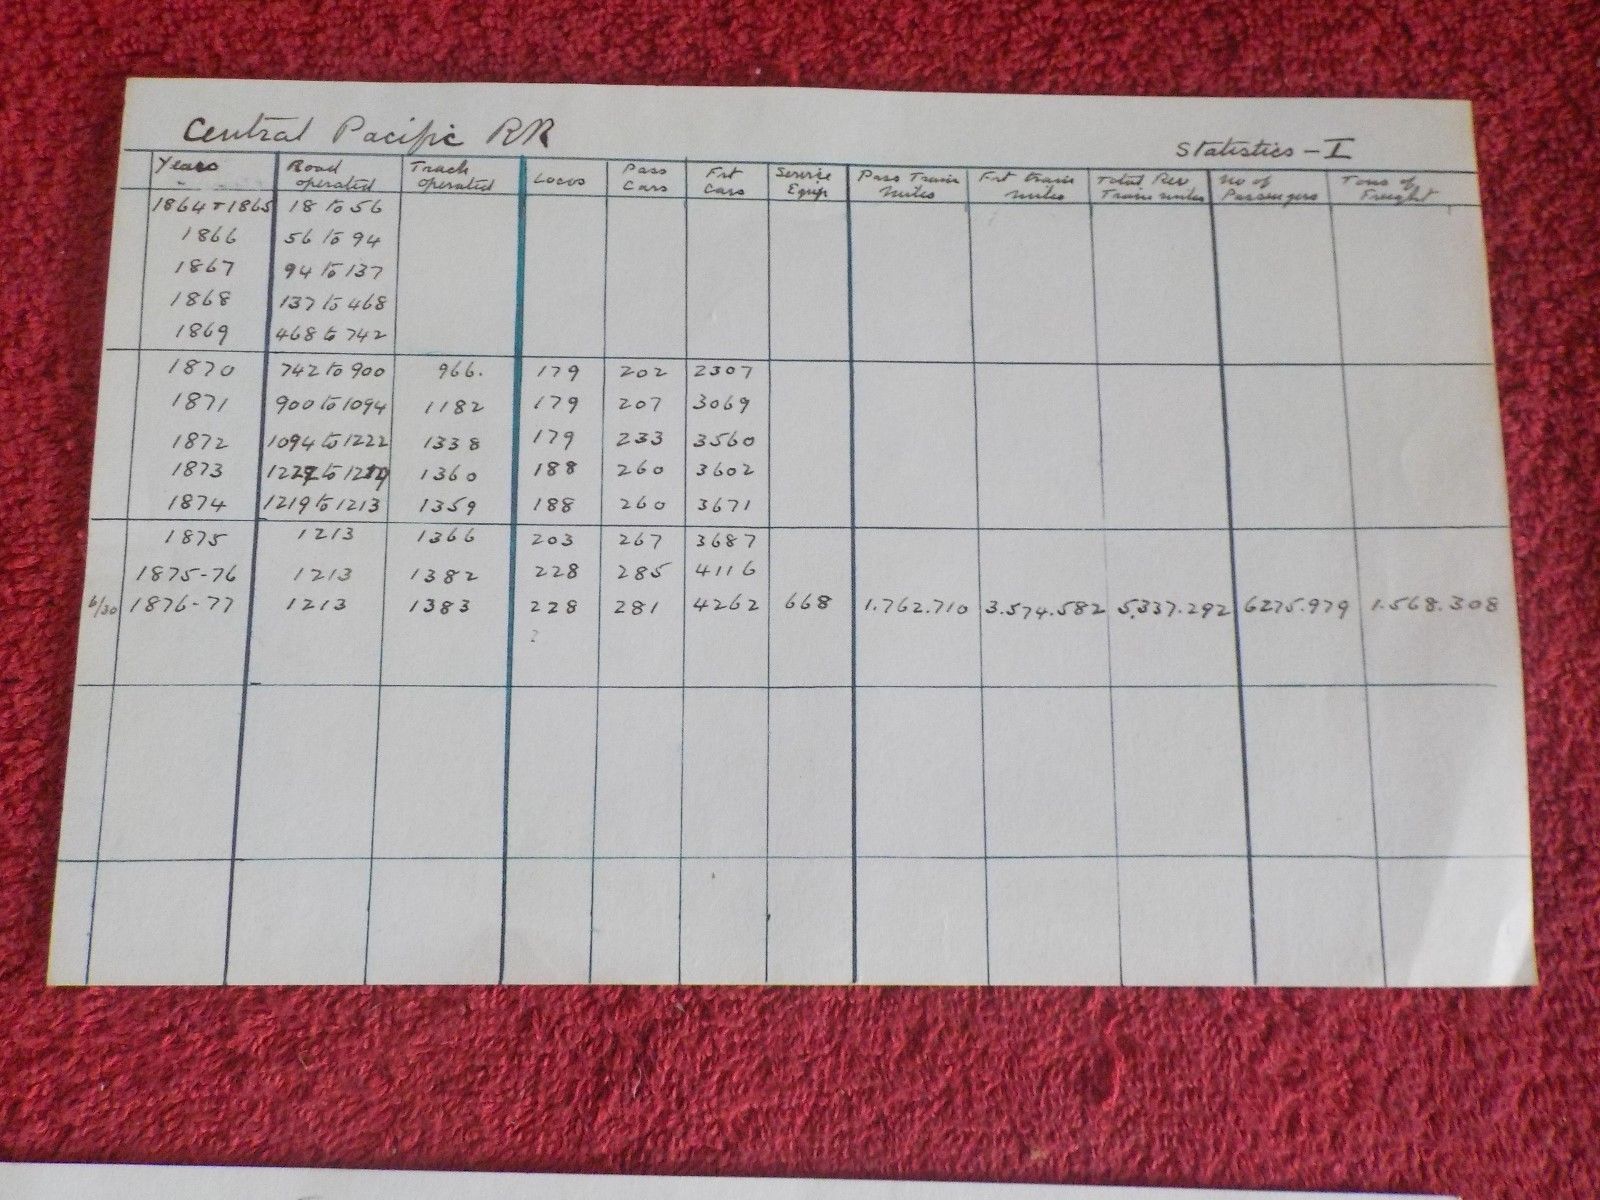 Central Pacific RR
Statistics - I
Years Road operated Track operated Locos Pass Cars Frt Cars Service Equip Pass Train Miles Frt train miles Total Rev Train miles No of Passengers Tons of Freight
1864 + 1865 18 to 56
1866 56 to 94
1867 94 to 137
1868 137 to 468
1869 468 to 742
1870 742 to 900 966. 179 202 2307
1871 900 to 1094 1182 179 207 3069
1872 1094 to 1222 1338 179 233 3560
1873 1222 to 1219 1360 188 260 3602
1874 1219 to 1213 1359 188 260 3671
1875 1213 1366 203 267 3687
1875-76 1213 1382 228 285 4116
6/30 1876-77 1213 1383 228 281 4262 668 1.762.710 3.574.582 5.337.292 6275.979 1.568.308
?